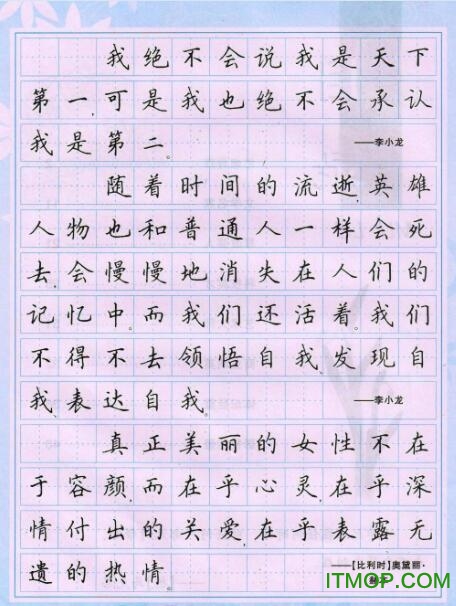 我绝不会说我是天下
第一,可是我也绝不会承认
我是第二。 ——李小龙
随着时间的流逝,英雄
人物也和普通人一样会死
去,会慢慢地消失在人们的
记忆中。而我们还活着。我们
不得不去领悟自我,发现自
我,表达自我。 ——李小龙
真正美丽的女性不在
于容颜,而在乎心灵,在乎深
情付出的关爱,在乎表露无
遗的热情 ——[比利时]奥黛丽·
ITMOP.COM